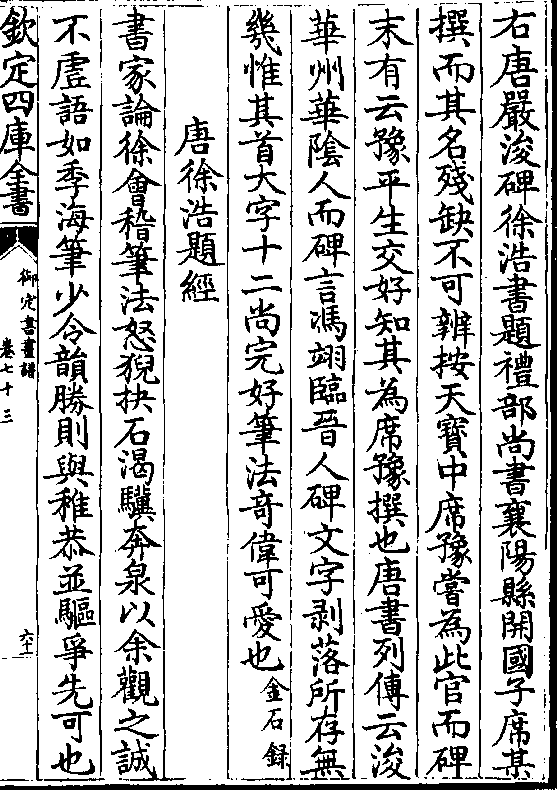 右唐嚴浚碑徐浩書題禮部尚書襄陽縣開國子席某
撰而其名殘缺不可辨按天寶中席豫嘗為此官而碑
末有云豫平生交好知其為席豫撰也唐書列傳云浚
華州華隂人而碑言馮翊臨晉人碑文字剥落所存無
幾惟其首大字十二尚完好筆法竒偉可愛也金石録
唐徐浩題經
書家論徐會稽筆法怒猊抉石渴驥奔泉以余觀之誠
不虛語如季海筆少令韻勝則與稚恭並驅爭先可也
欽定四庫全書
御定書畫譜
卷七十三
六十